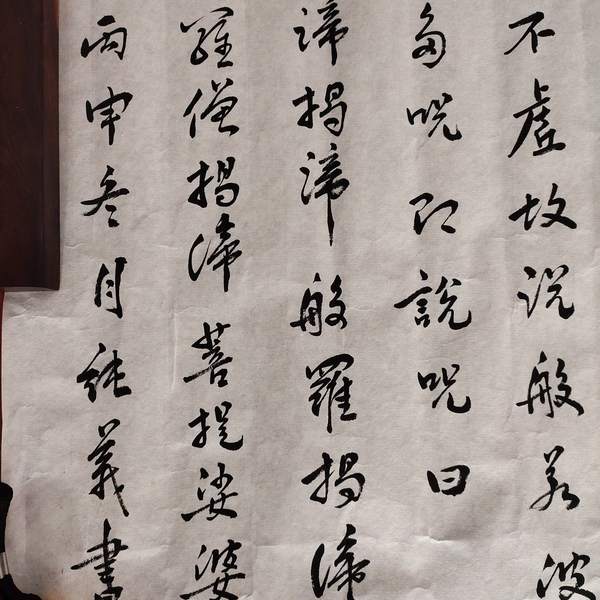 不虛故説般若波
多呪即說呪曰
諦揭諦般羅揭諦
羅僧揭諦菩提娑婆
丙申冬月義書